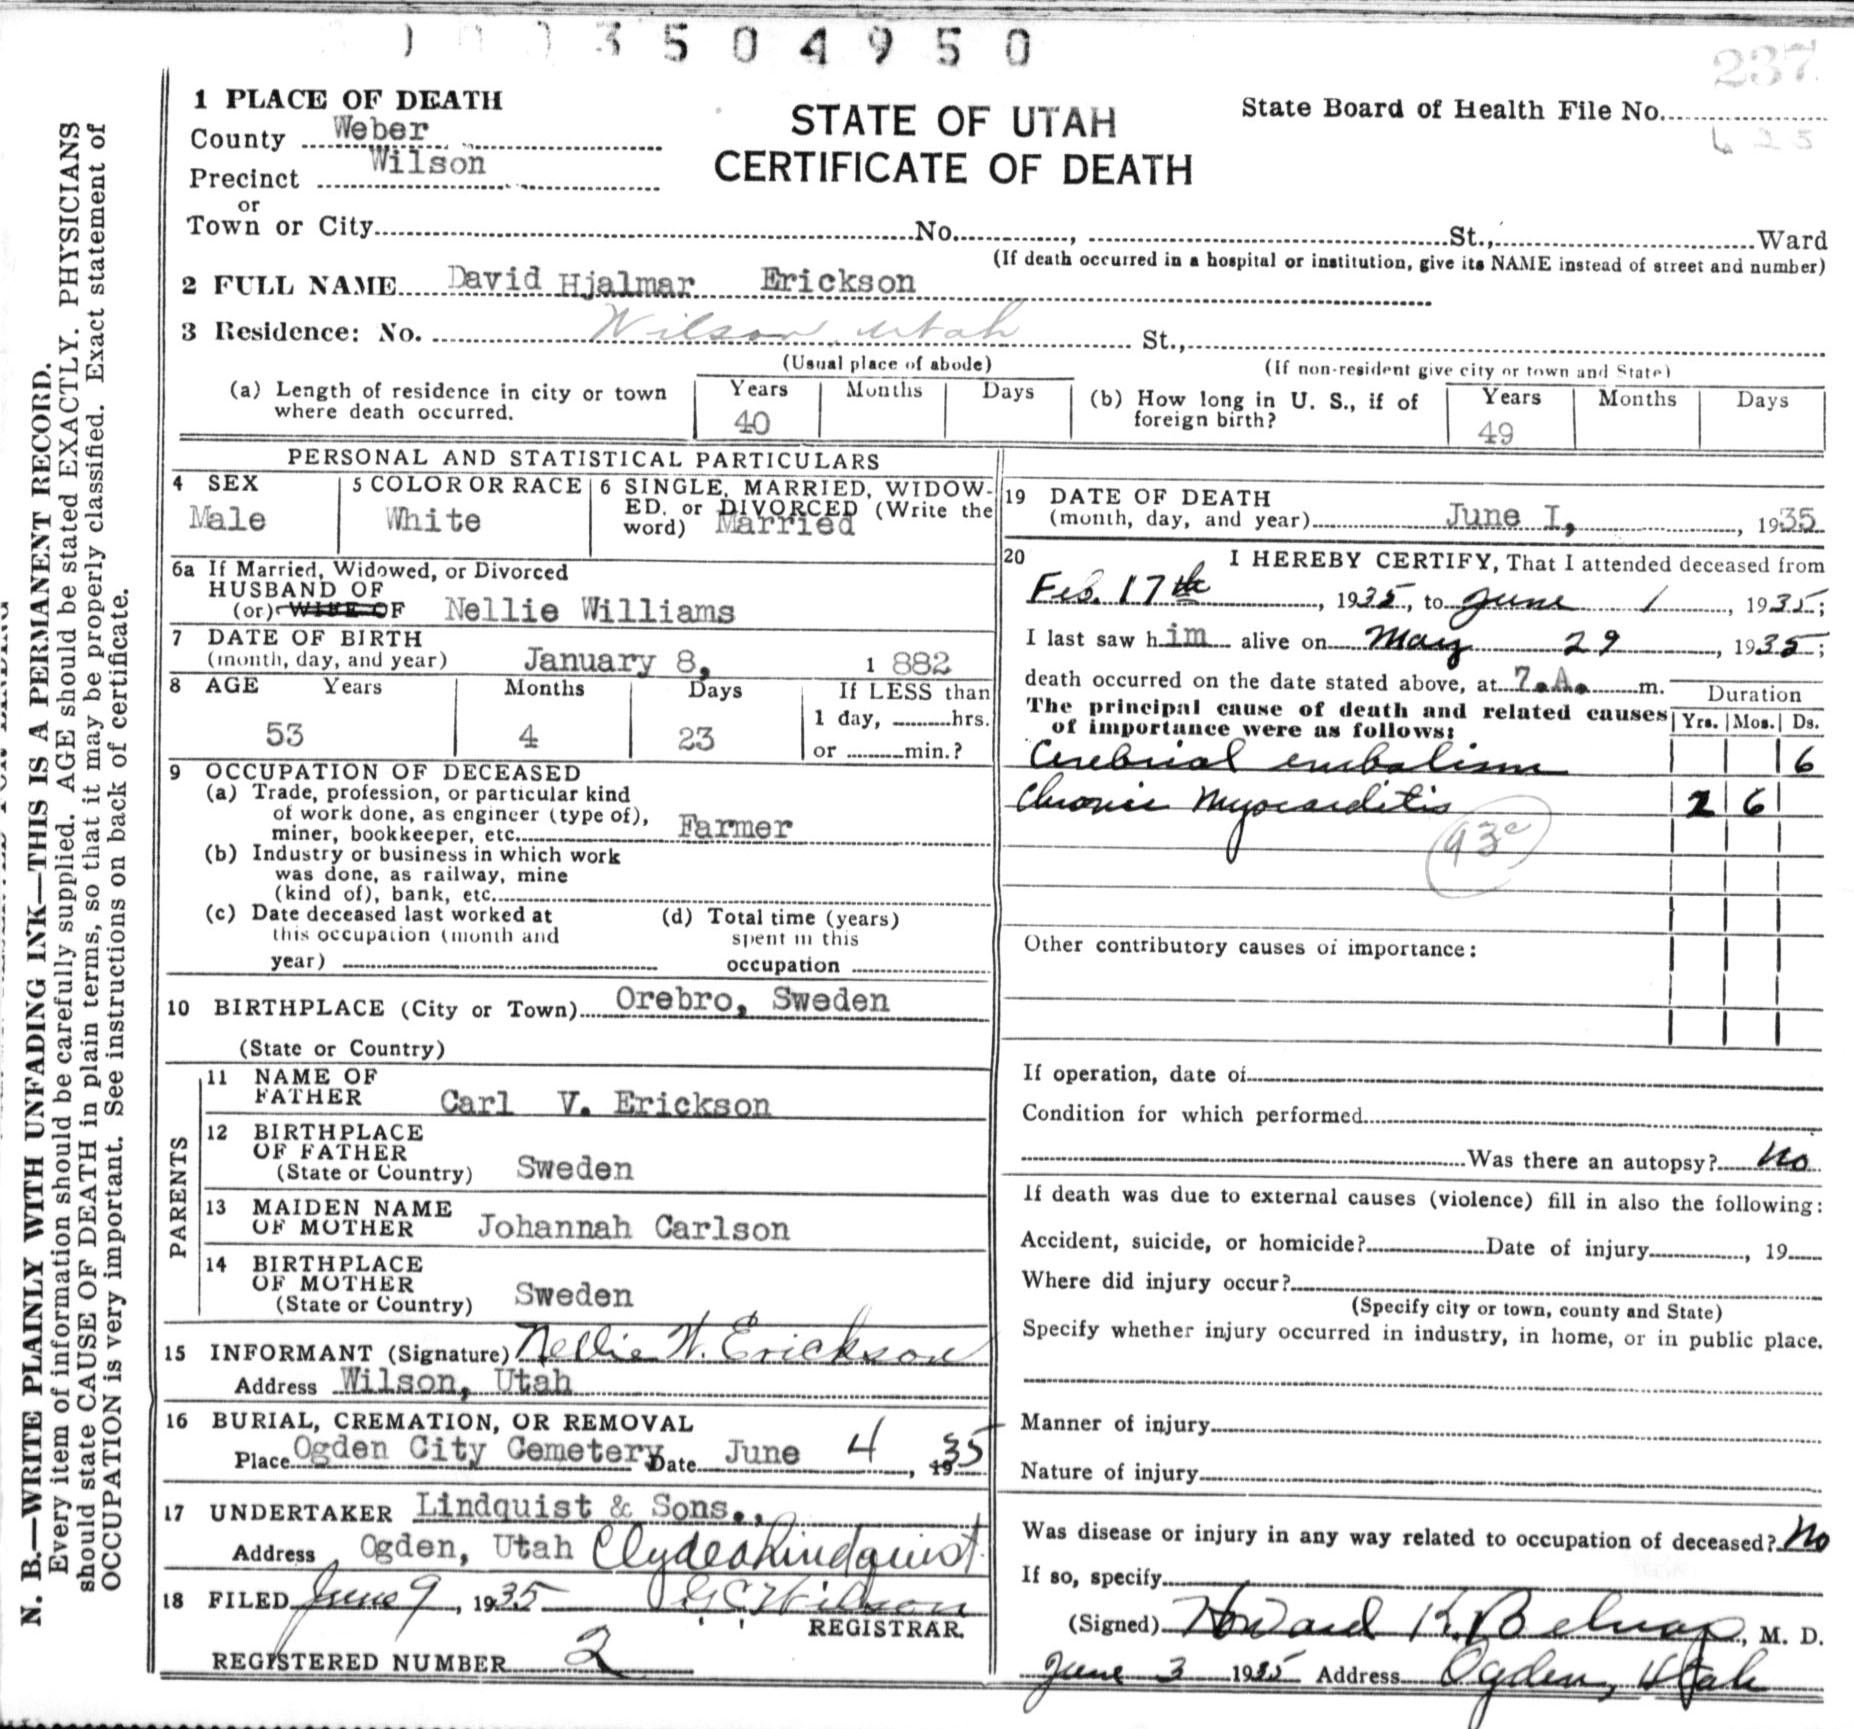 3504950
237
1 PLACE OF DEATH
County Weber
Precinct Wilson
or
Town or City No. , St., Ward
(If death occurred in a hospital or institution, give its NAME instead of street and number)
STATE OF UTAH
CERTIFICATE OF DEATH
State Board of Health File No.
625
2 FULL NAME David Hjalmar Erickson
3 Residence: No. Wilson, Utah St.,
(Usual place of abode) (If non-resident give city or town and State)
(a) Length of residence in city or town
where death occurred.
Years Months Days
40
(b) How long in U. S., if of
foreign birth?
Years Months Days
49
PERSONAL AND STATISTICAL PARTICULARS
4 SEX
Male
5 COLOR OR RACE
White
6 SINGLE, MARRIED, WIDOW-
ED, or DIVORCED (Write the
word) Married
6a If Married, Widowed, or Divorced
HUSBAND OF
(or) WIFE OF Nellie Williams
7 DATE OF BIRTH
(month, day, and year) January 8, 1 882
8 AGE Years Months Days If LESS than
53 4 23 1 day, hrs.
or min.?
9 OCCUPATION OF DECEASED
(a) Trade, profession, or particular kind
of work done, as engineer (type of),
miner, bookkeeper, etc. Farmer
(b) Industry or business in which work
was done, as railway, mine
(kind of), bank, etc.
(c) Date deceased last worked at
this occupation (month and
year)
(d) Total time (years)
spent in this
occupation
10 BIRTHPLACE (City or Town) Orebro, Sweden
(State or Country)
PARENTS
11 NAME OF
FATHER Carl V. Erickson
12 BIRTHPLACE
OF FATHER
(State or Country) Sweden
13 MAIDEN NAME
OF MOTHER Johannah Carlson
14 BIRTHPLACE
OF MOTHER
(State or Country) Sweden
15 INFORMANT (Signature) Nellie W. Erickson
Address Wilson, Utah
16 BURIAL, CREMATION, OR REMOVAL
Place Ogden City Cemetery Date June 4, 1935
17 UNDERTAKER Lindquist & Sons.,
Address Ogden, Utah Clyde A Lindquist.
18 FILED June 9, 1935 G C Wilson
REGISTRAR.
REGISTERED NUMBER 2
19 DATE OF DEATH
(month, day, and year) June I, , 1935
20 I HEREBY CERTIFY, That I attended deceased from
Feb. 17th, 1935, to June 1, 1935;
I last saw him alive on May 29, 1935;
death occurred on the date stated above, at 7.A. m.
The principal cause of death and related causes
of importance were as follows:
Duration
Yrs. Mos. Ds.
Cerebrial embolism 6
Chronic Myocarditis 2 6
93c
Other contributory causes of importance:
If operation, date of
Condition for which performed
Was there an autopsy? No
If death was due to external causes (violence) fill in also the following:
Accident, suicide, or homicide? Date of injury , 19
Where did injury occur?
(Specify city or town, county and State)
Specify whether injury occurred in industry, in home, or in public place.
Manner of injury
Nature of injury
Was disease or injury in any way related to occupation of deceased? No
If so, specify
(Signed) Howard K. Belnap, M. D.
June 3 1935 Address Ogden, Utah
N. B.—WRITE PLAINLY WITH UNFADING INK—THIS IS A PERMANENT RECORD.
Every item of information should be carefully supplied. AGE should be stated EXACTLY. PHYSICIANS
should state CAUSE OF DEATH in plain terms, so that it may be properly classified. Exact statement of
OCCUPATION is very important. See instructions on back of certificate.